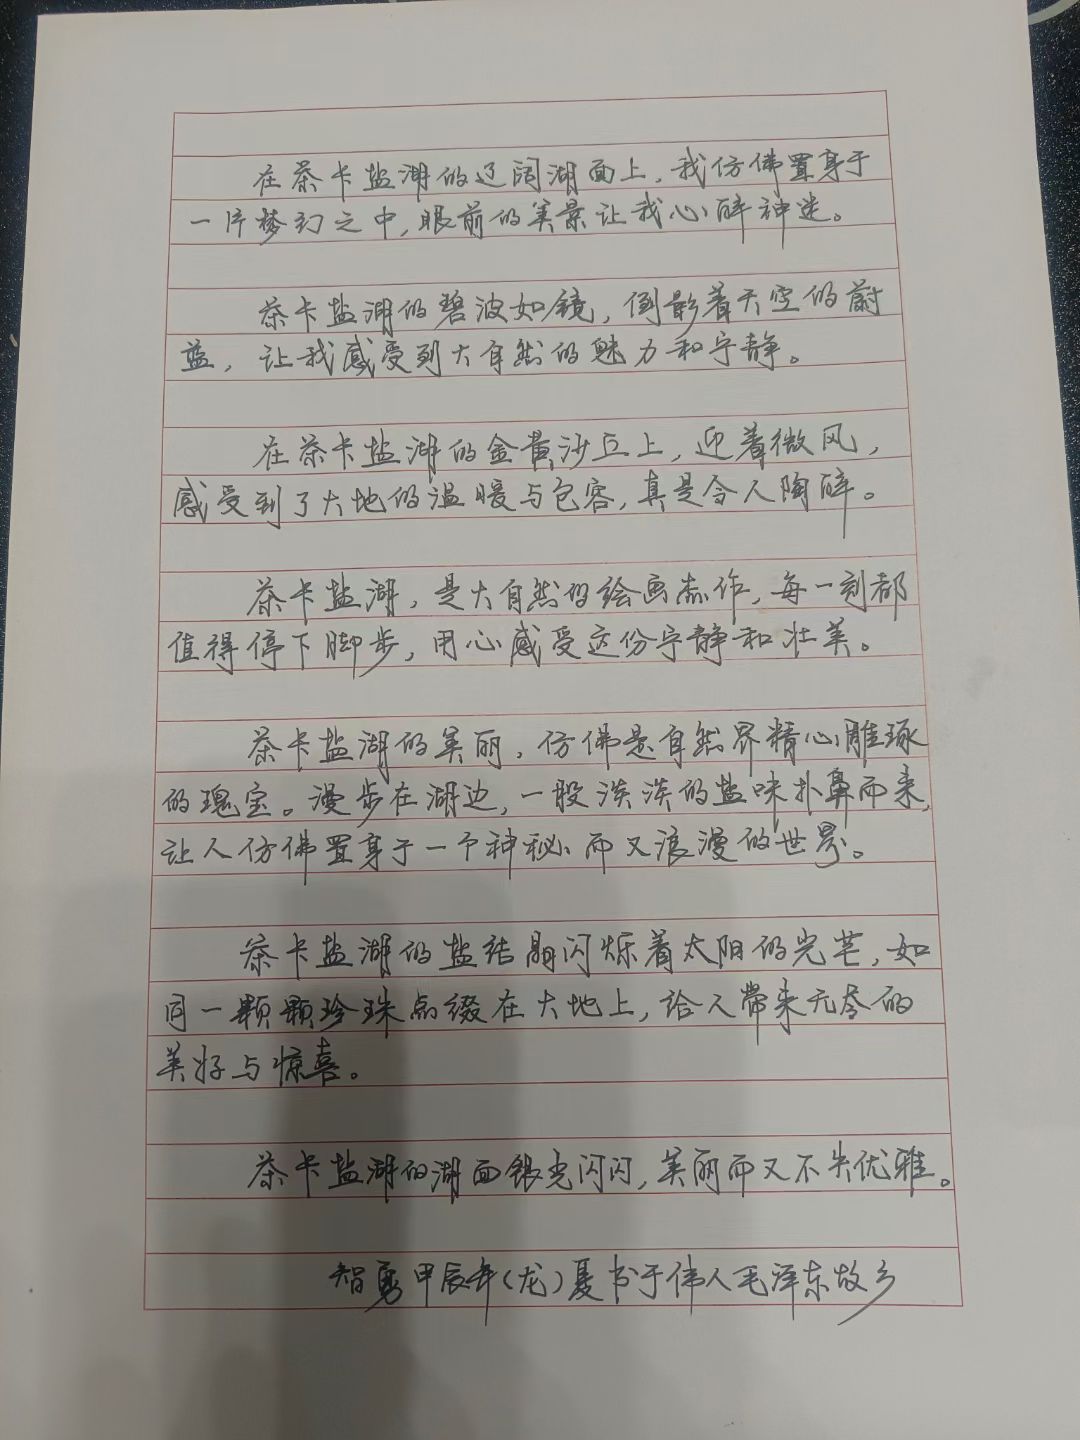 在茶卡盐湖的辽阔湖面上，我仿佛置身于
一片梦幻之中，眼前的美景让我心醉神迷。
茶卡盐湖的碧波如镜，倒影着天空的蔚
蓝，让我感受到大自然的魅力和宁静。
在茶卡盐湖的金黄沙丘上，迎着微风，
感受到了大地的温暖与包容，真是令人陶醉。
茶卡盐湖，是大自然的绘画杰作，每一刻都
值得停下脚步，用心感受这份宁静和壮美。
茶卡盐湖的美丽，仿佛是自然界精心雕琢
的瑰宝。漫步在湖边，一股淡淡的盐味扑鼻而来，
让人仿佛置身于一个神秘而又浪漫的世界。
茶卡盐湖的盐结晶闪烁着太阳的光芒，如
同一颗颗珍珠点缀在大地上，给人带来无尽的
美好与惊喜。
茶卡盐湖的湖面银光闪闪，美丽而又不失优雅。
智勇甲辰年（龙）夏书于伟人毛泽东故乡